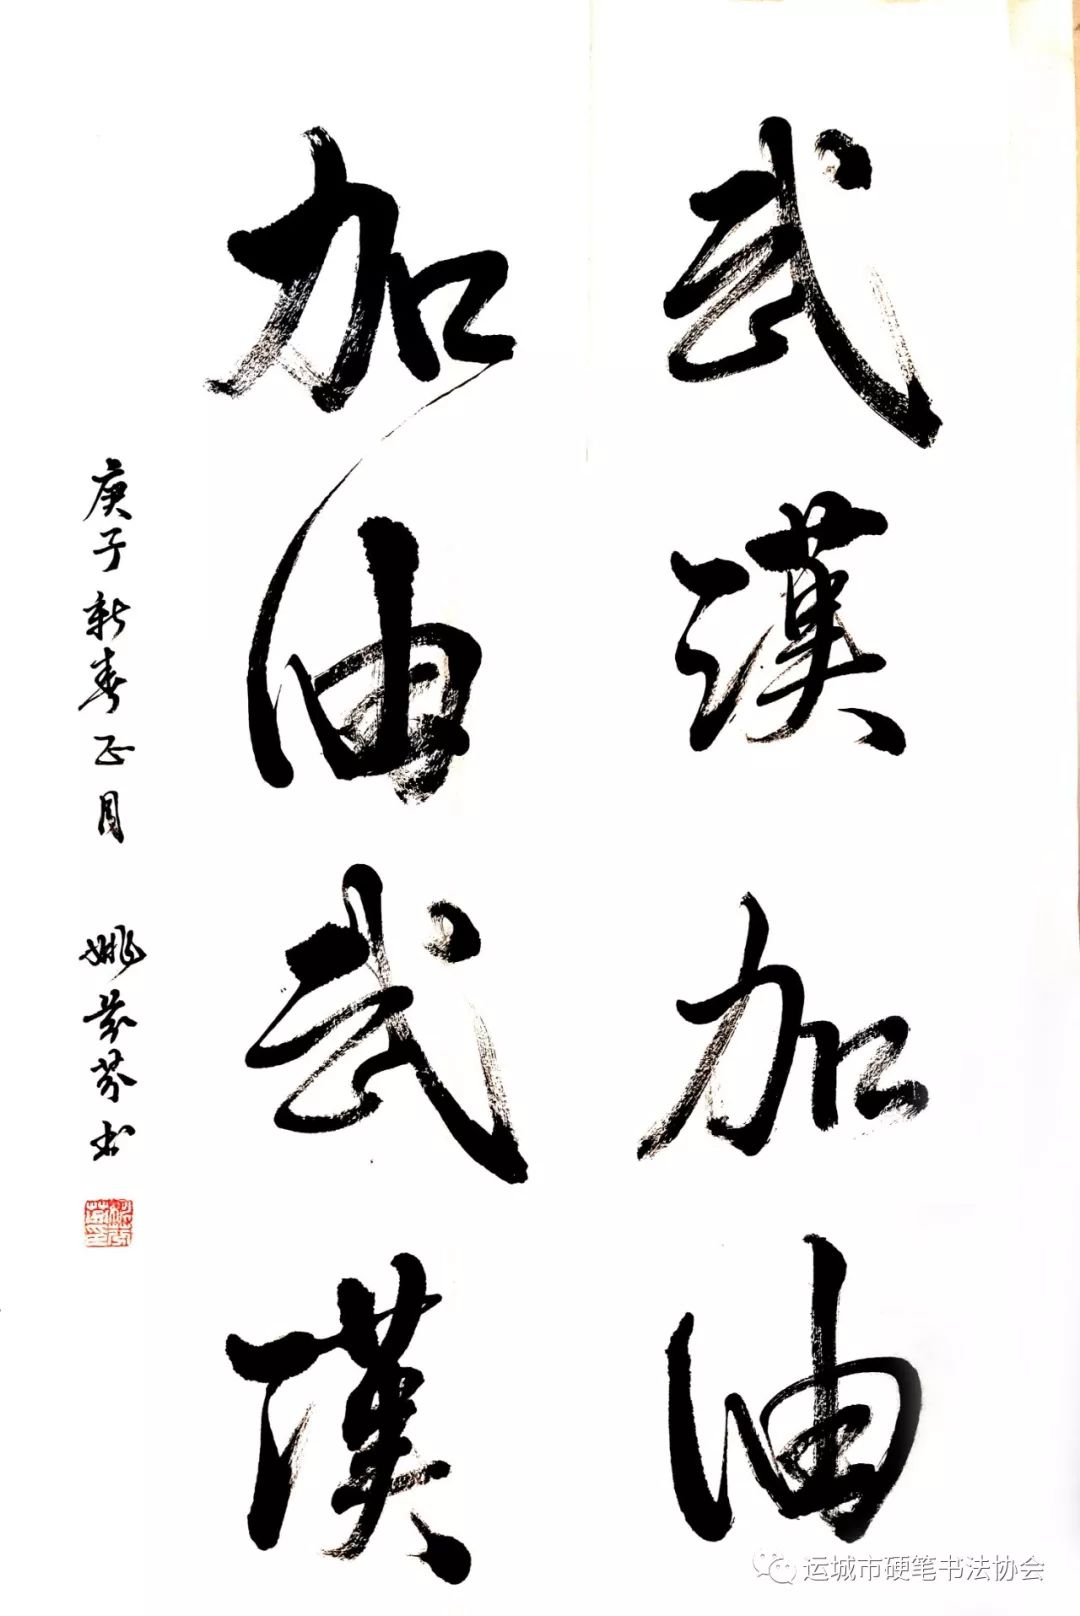 武漢加油
加油武漢
庚子新春正月 姚芬芬书
运城市硬笔书法协会